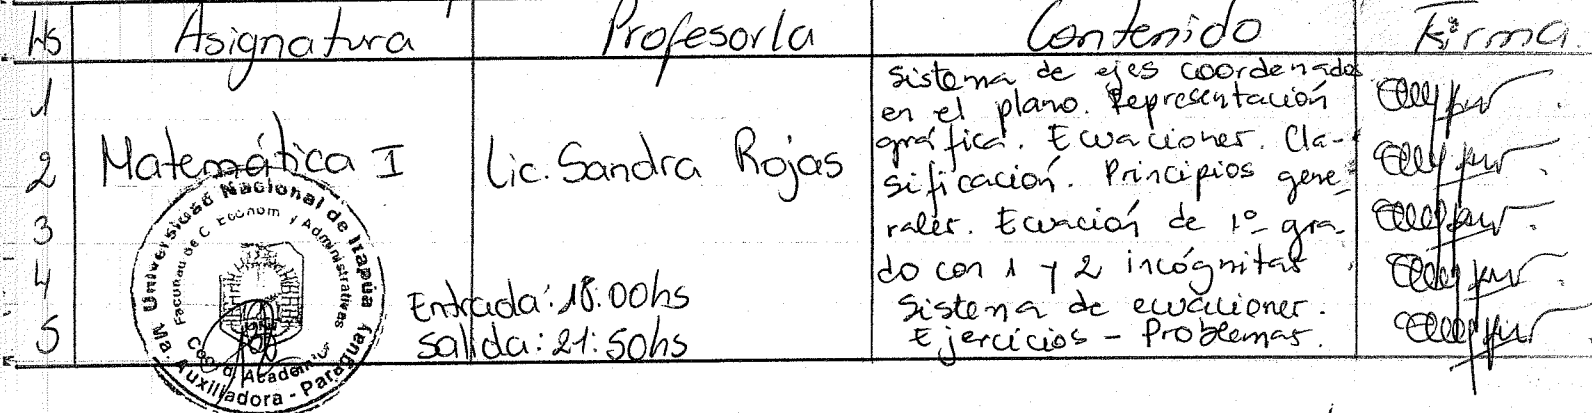 Hs Asignatura Profesor/a Contenido Firma.
1
2
3
4
5
Matemática I
Lic. Sandra Rojas
Entrada: 18:00hs
Salida: 21:50hs
Sistema de ejes coordenados
en el plano. Representación
gráfica. Ecuaciones. Cla-
sificación. Principios gene-
rales. Ecuación de 1º gra-
do con 1 y 2 incógnitas.
Sistema de ecuaciones.
Ejercicios - Problemas.
Universidad Nacional de Itapúa
Facultad de C. Econom y Administrativas
Ma. Auxiliadora - Paraguay